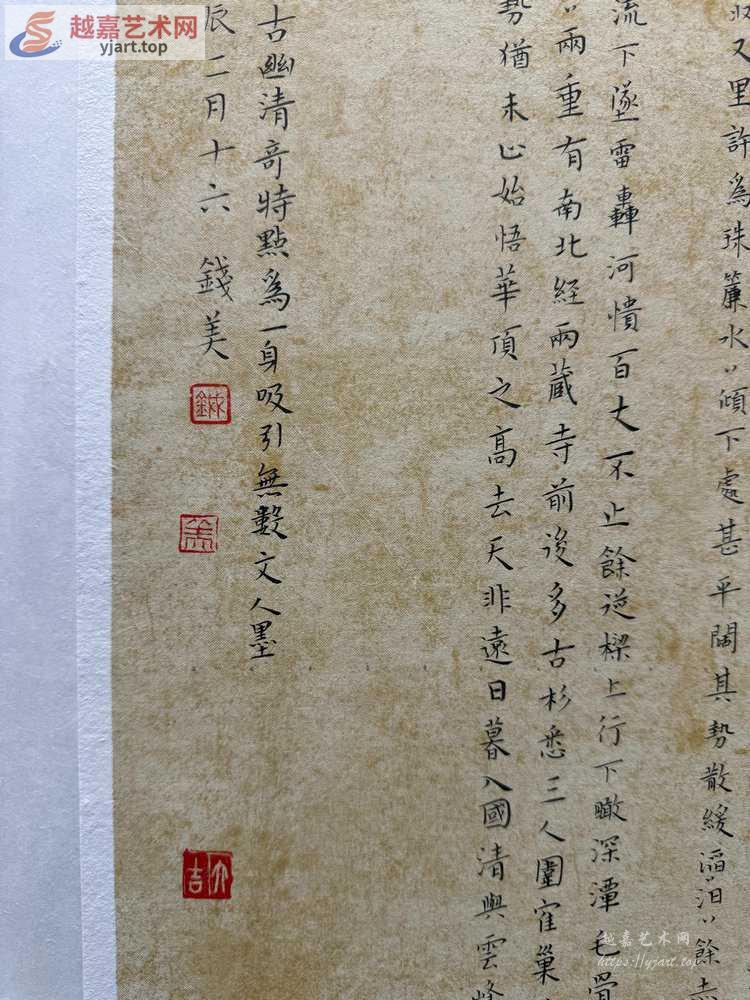 越嘉艺术网
yjart.top
又里許爲珠簾水〻傾下處甚平闊其勢散緩滔〻汩〻餘赤
流下墜雷轟河憒百丈不止餘從樑上行下瞰深潭毛骨
〻兩重有南北經兩藏寺前後多古杉悉三人圍寉巢
勢猶未止始悟華頂之高去天非遠日暮入國清與雲峰
古幽清奇特點爲一身吸引無數文人墨
辰二月十六 錢美
美
大吉
越嘉艺术网
https://yjart.top